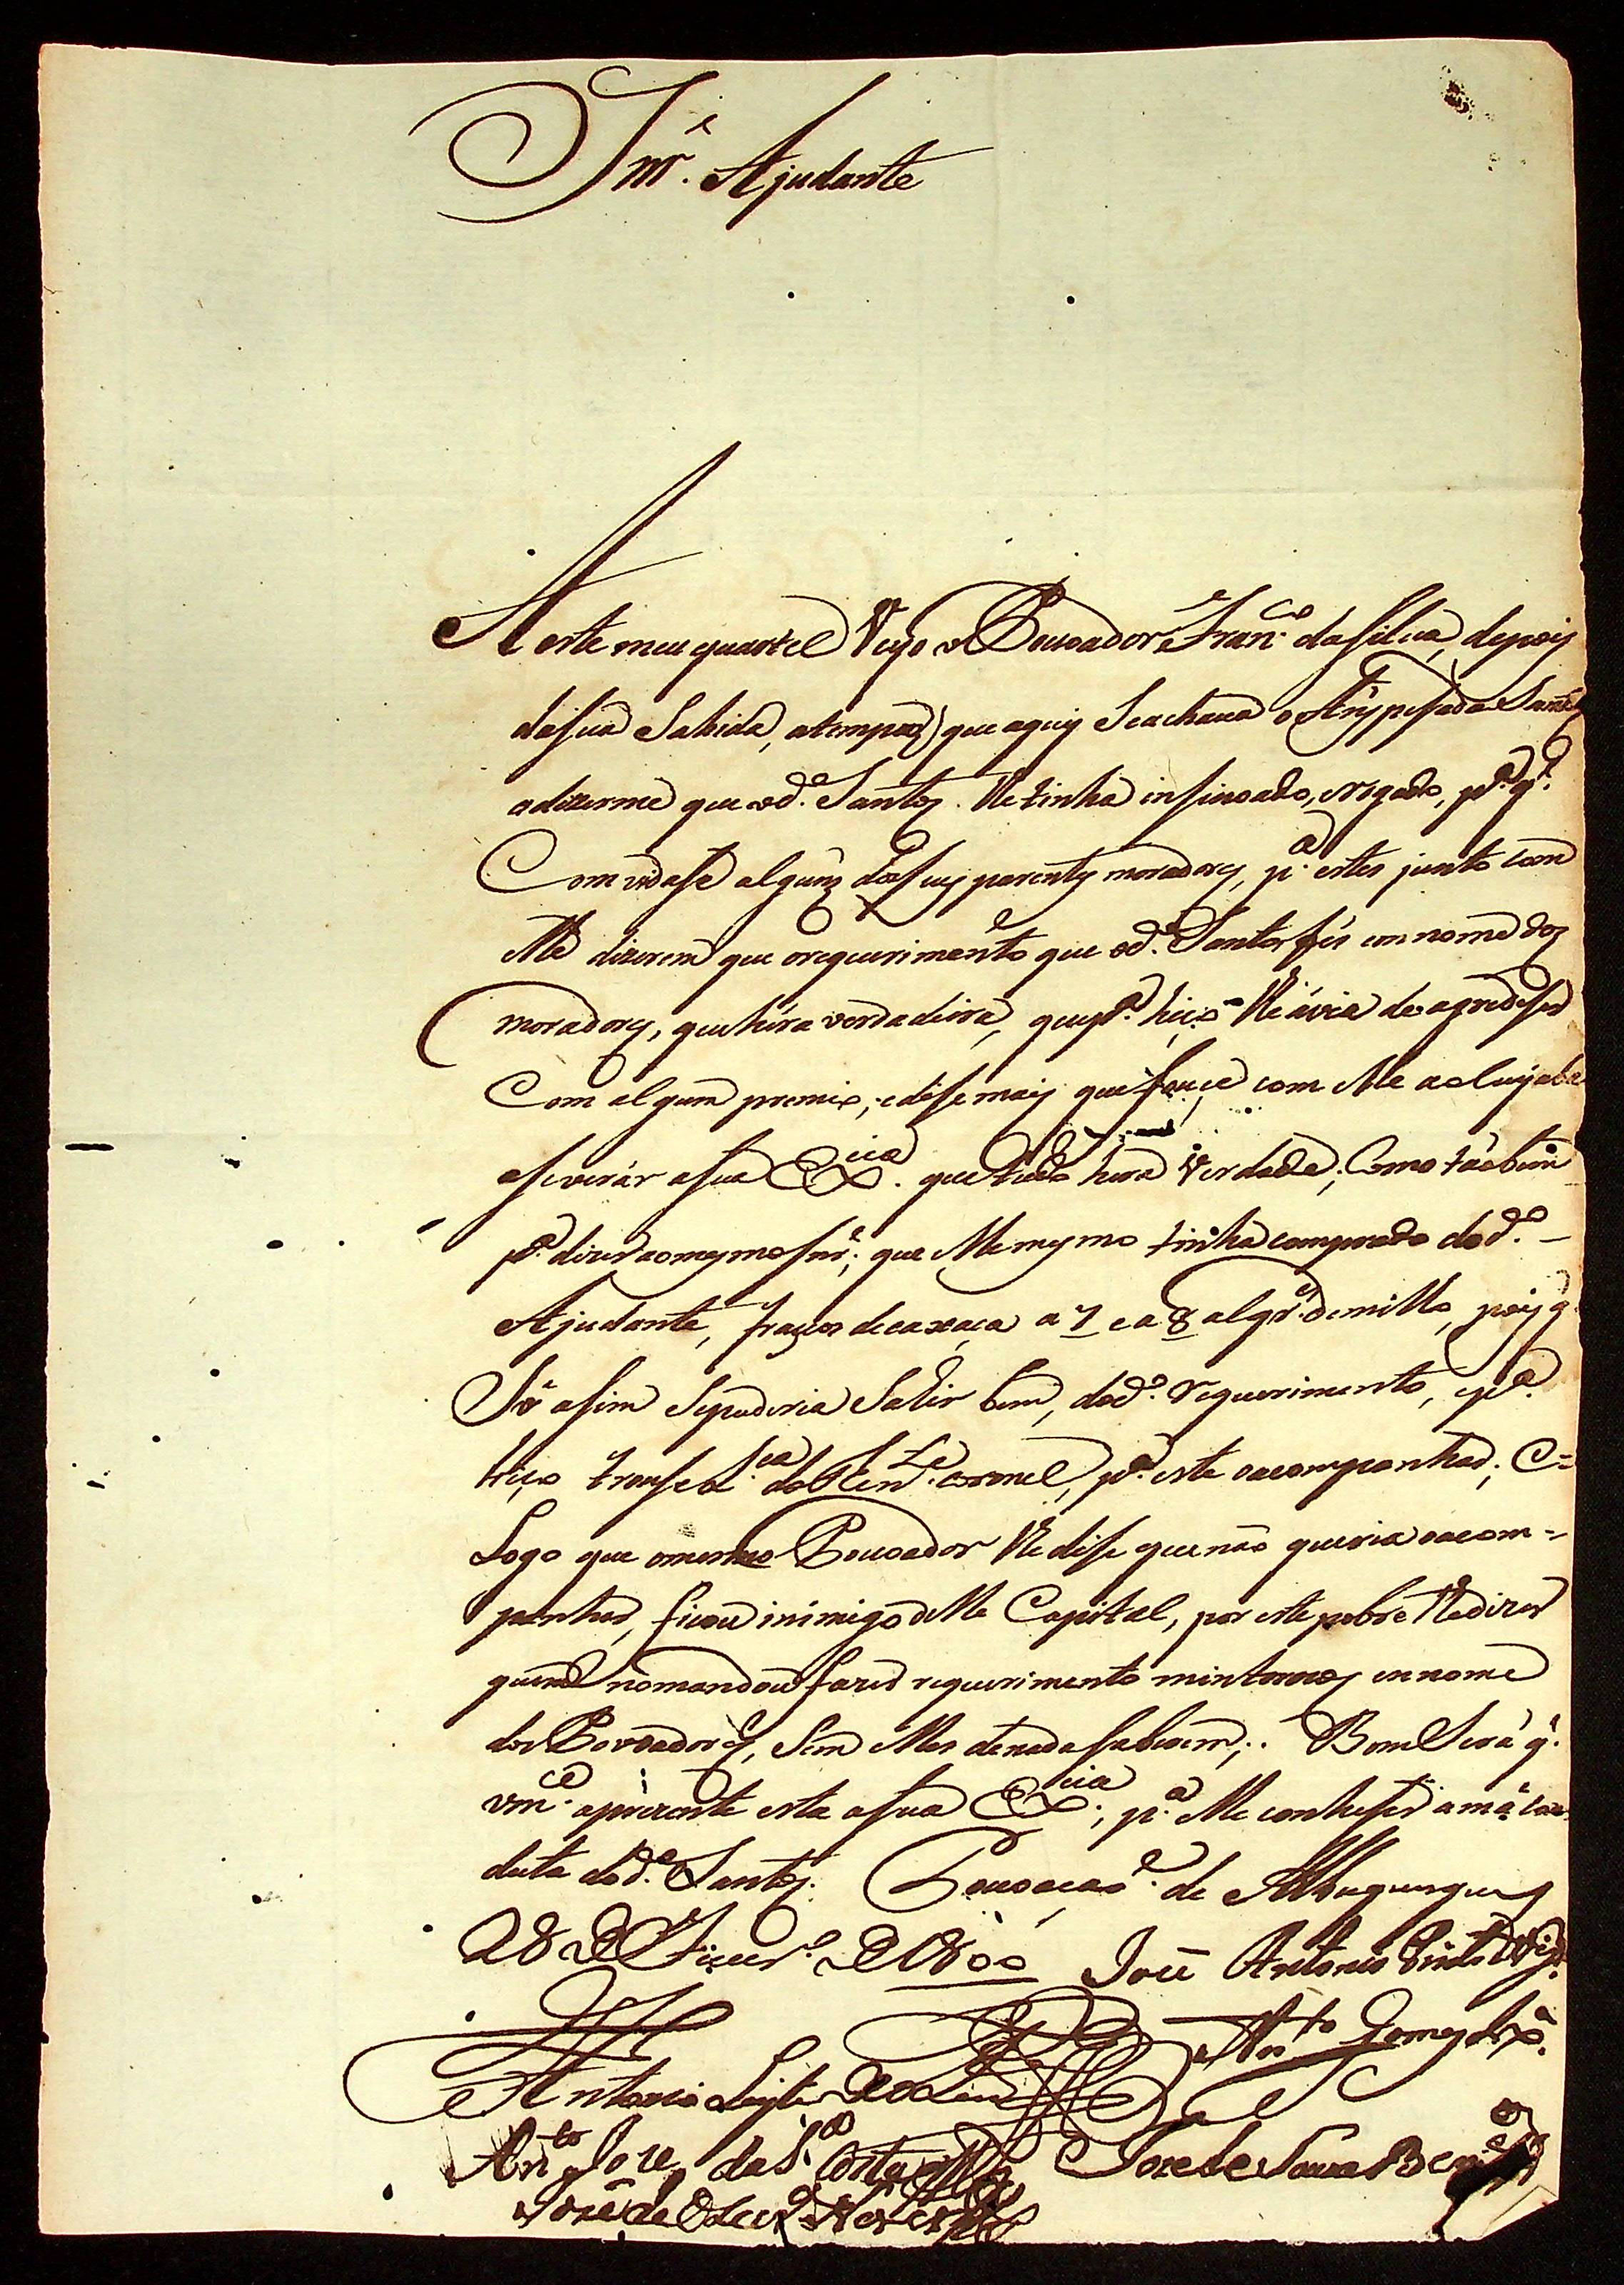 Snr.ᵉ Ajudante
A este meu quartel Veyo o Povoador Fran.ᶜᵒ da Silva, depois
da sua Sahida, a tempo que aquy Se achava o Anspesada Santos
a dizerme que o d.ᵒ Santos lhe tinha insinoado, e rogado, p.ᵃ q.ᵉ
Comvidase alguns dos suy parentes moradores, p.ᵃ estes junto com
elle dizerem que o requerimento que o d.ᵒ Santos fes em nome dos
moradores, que hera verdadeiro, que p.ᵃ hiço lhe avia de agredeser
Com algum premio; e dise mais que foce com elle
aseverár a sua Exᶜⁱᵃ. que tudo hera Verdade; Como táobem
p.ᵃ dizer ao mesmo Snr.ᵉ; que elle mesmo tinha comprado do d.ᵒ
Ajudante, frascos de caxaça a 7 e a 8 alqr.ˢ de milho, pois q
Só asim Se puderia Sahir bem, do d.ᵒ requerimento, e p.ᵃ
hiço trouse L.ᶜᵃ do Ten.ᵗᵉ coronel, p.ᵃ este o acompanhar; E=
Logo que o mesmo Povoador lhe dise que não queria o acom=
panhar, ficou inimigo delle Capital, por este pobre lhe dizer
quem o mandou fazer requerimento mintrozos em nome
dos Povoadores, Sem elles de nada saberem;. Bom Será q.ᵉ
vm.ᶜᵉ aprezente esta a sua Exᶜⁱᵃ; p.ᵃ elle conheser a má con
duta do d.ᵒ Santos. Povoação. de Albuquerque
28 de Fiver.ᵒ de 1800 José Antonio Pinto
Ant.ᵗᵒ Gomes da
Antonio Leyte
Ant.ᵗᵒ Joze da S.ᵃ Costa
Joze de
Joze de